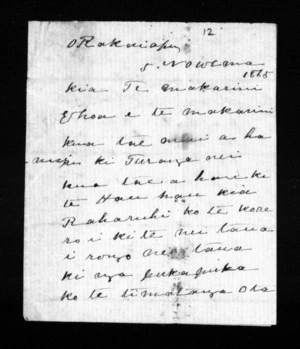 12
ORakaiapu
5 Nowema
1865
Kia Te Makarini
Ehoa e te makarini
kua tae mai a ha
ki Turanga nei
kua tae a hau ki
te Hau hau kia
Raharuhi ko te kore
ro i ki te nei tana
i rongo nei tana
ki nga pukapuka
ko te timatanga o ta